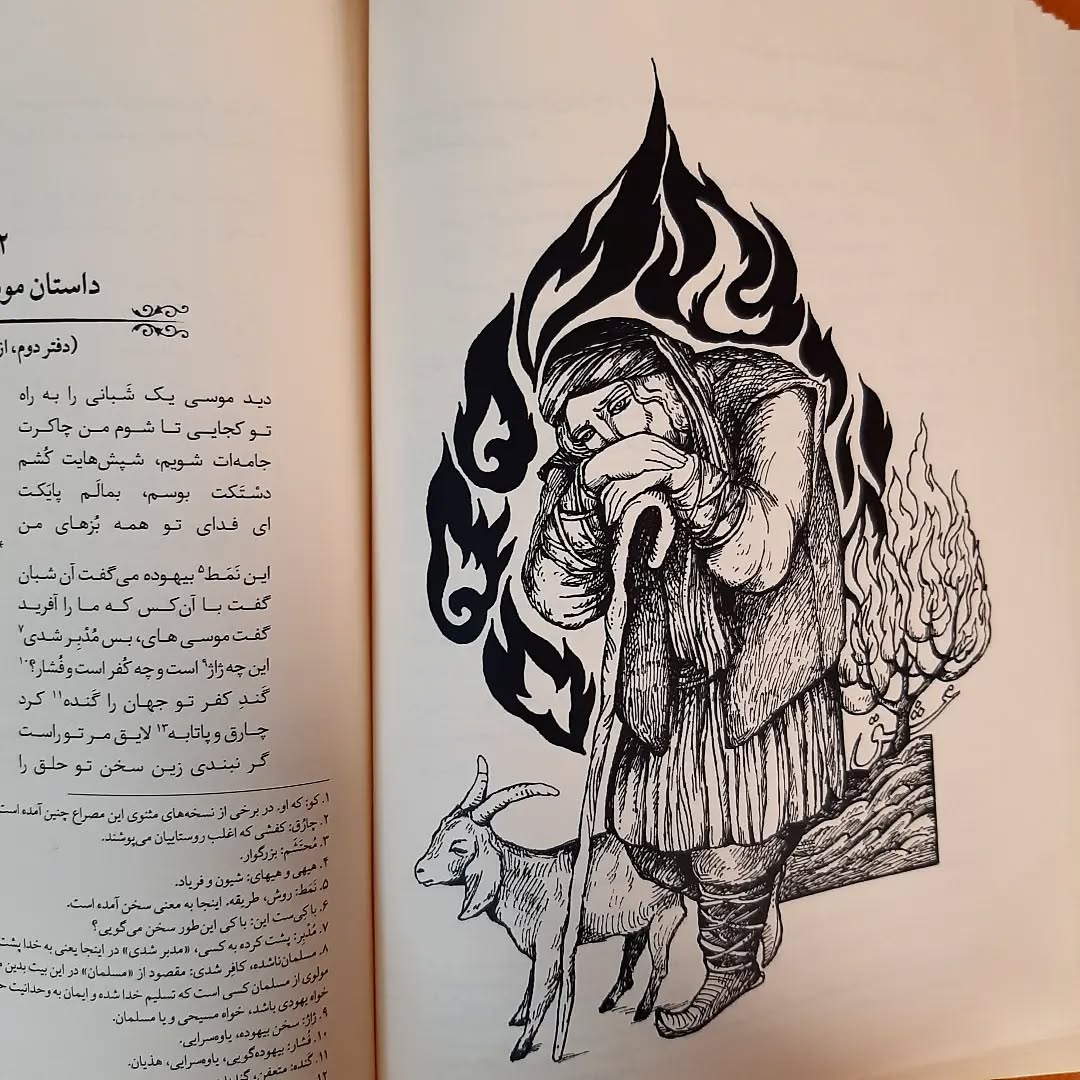 ۲
داستان مو
(دفتر دوم، از
دید موسی یک شَبانی را به راه
تو کجایی تا شوم من چاکرت
جامه‌ات شویم، شپش‌هایت کُشم
دسْتَکت بوسم، بمالَم پایَکت
ای فدای تو همه بُزهای من
*
این نَمَط۵ بیهوده می‌گفت آن شبان
گفت با آن‌کس که ما را آفرید
گفت موسی های، بس مُدْبِر شدی۷
این چه ژاژ۹ است و چه کُفر است و فُشار؟۱۰
گَندِ کفر تو جهان را گَنده۱۱ کرد
چارق و پاتابه۱۳ لایق مر تو راست
گر نبندی زین سخن تو حلق را
۱. کو: که او. در برخی از نسخه‌های مثنوی این مصراع چنین آمده است
۲. چارُق: کفشی که اغلب روستاییان می‌پوشند.
۳. مُحتَشَم: بزرگوار.
۴. هیهی و هیهای: شیون و فریاد.
۵. نَمَط: روش، طریقه. اینجا به معنی سخن آمده است.
۶. با کی‌ست این: با کی این‌طور سخن می‌گویی؟
۷. مُدْبِر: پشت کرده به کسی، «مدبر شدی» در اینجا یعنی به خدا پشت
۸. مسلمان‌ناشده، کافر شدی: مقصود از «مسلمان» در این بیت بدین
مولوی از مسلمان کسی است که تسلیم خدا شده و ایمان به وحدانیت
خواه یهودی باشد، خواه مسیحی و یا مسلمان.
۹. ژاژ: سخن بیهوده، یاوه‌سرایی.
۱۰. فُشار: بیهوده‌گویی، یاوه‌سرایی، هذیان.
۱۱. گَنده: متعفن،
۱۲